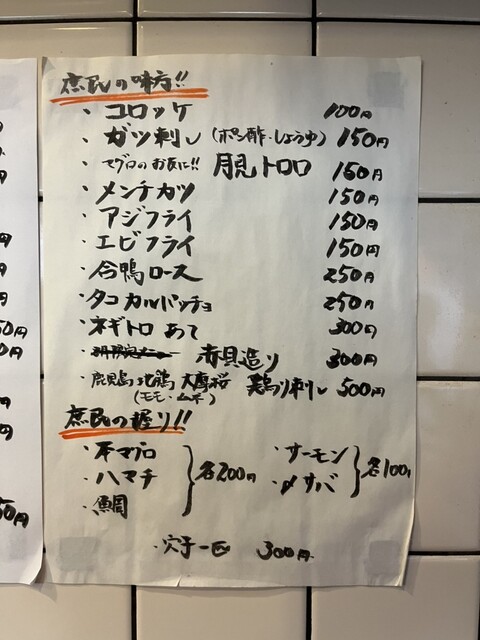 庶民の味方!!
・コロッケ 100円
・ガツ刺し(ポン酢・しょうゆ) 150円
・マグロのお友に!! 月見トロロ 150円
・メンチカツ 150円
・アジフライ 150円
・エビフライ 150円
・合鴨ロース 250円
・タコカルパッチョ 250円
・ネギトロあて 300円
・赤貝造り 300円
・鹿児島地鶏 大摩桜 鶏刺し 500円
(モモ・ムネ)
庶民の握り!!
・本マグロ
・ハマチ
・鯛
各200円
・サーモン
・〆サバ
各100円
・穴子一匹 300円